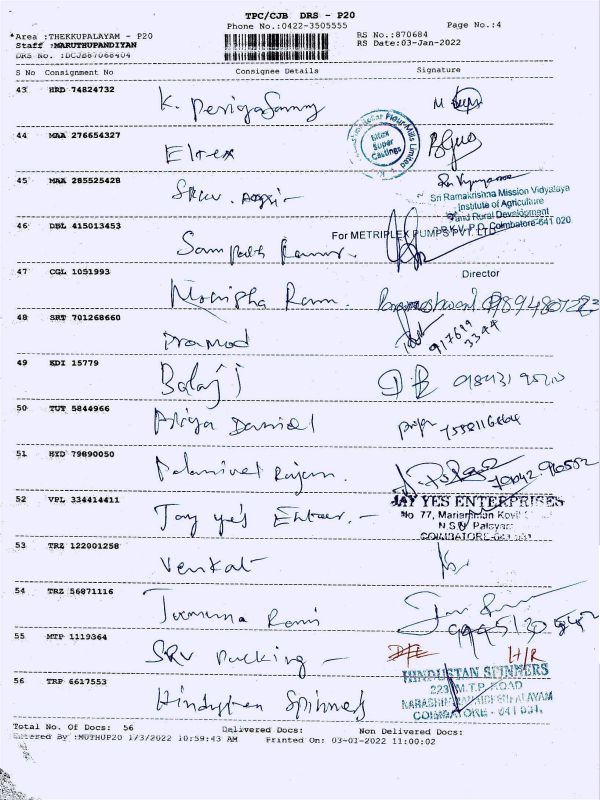 TPC/CJB DRS - P20
Phone No.:0422-3505555 Page No.:4
*Area : THEKKUPALAYAM - P20 RS No.:870684
Staff :MARUTHUPANDIYAN RS Date:03-Jan-2022
DRS No. :DCJB87068404
S No Consignment No Consignee Details Signature
43 HRD 74824732 K. Periyasamy
44 MAA 276654327 Eltex
Flour Mills Limited
Eltex Super Castings
45 MAA 285525428 SRKV. Agri -
Sri Ramakrishna Mission Vidyalaya
Institute of Agriculture
and Rural Development
Coimbatore-641 020
46 DBL 415013453 Sampath Kumar.
For METRIPLEX PUMPS PVT. LTD
Director
47 CGL 1051993 Monisha Ram.
48 SRT 701268660 Pramod 917699 3344
49 KDI 15779 Balaji
50 TUT 5844966 Daniel
51 HYD 79890050 Palanivel Rajan.
52 VPL 334414411 Jay yes Enter. -
JAY YES ENTERPRISES
No 77, Mariamman Kovil
COIMBATORE
53 TRZ 122001258 Venkat
54 TRZ 56871116 Jamuna Rani
55 MTP 1119364 SRV Packing - H/R
56 TRP 6617553 Hindustan Spinners
HINDUSTAN SPINNERS
223, M.T.P. ROAD
COIMBATORE - 641 031.
Total No. Of Docs: 56 Delivered Docs: Non Delivered Docs:
Entered By :MUTHUP20 1/3/2022 10:59:43 AM Printed On: 03-01-2022 11:00:02